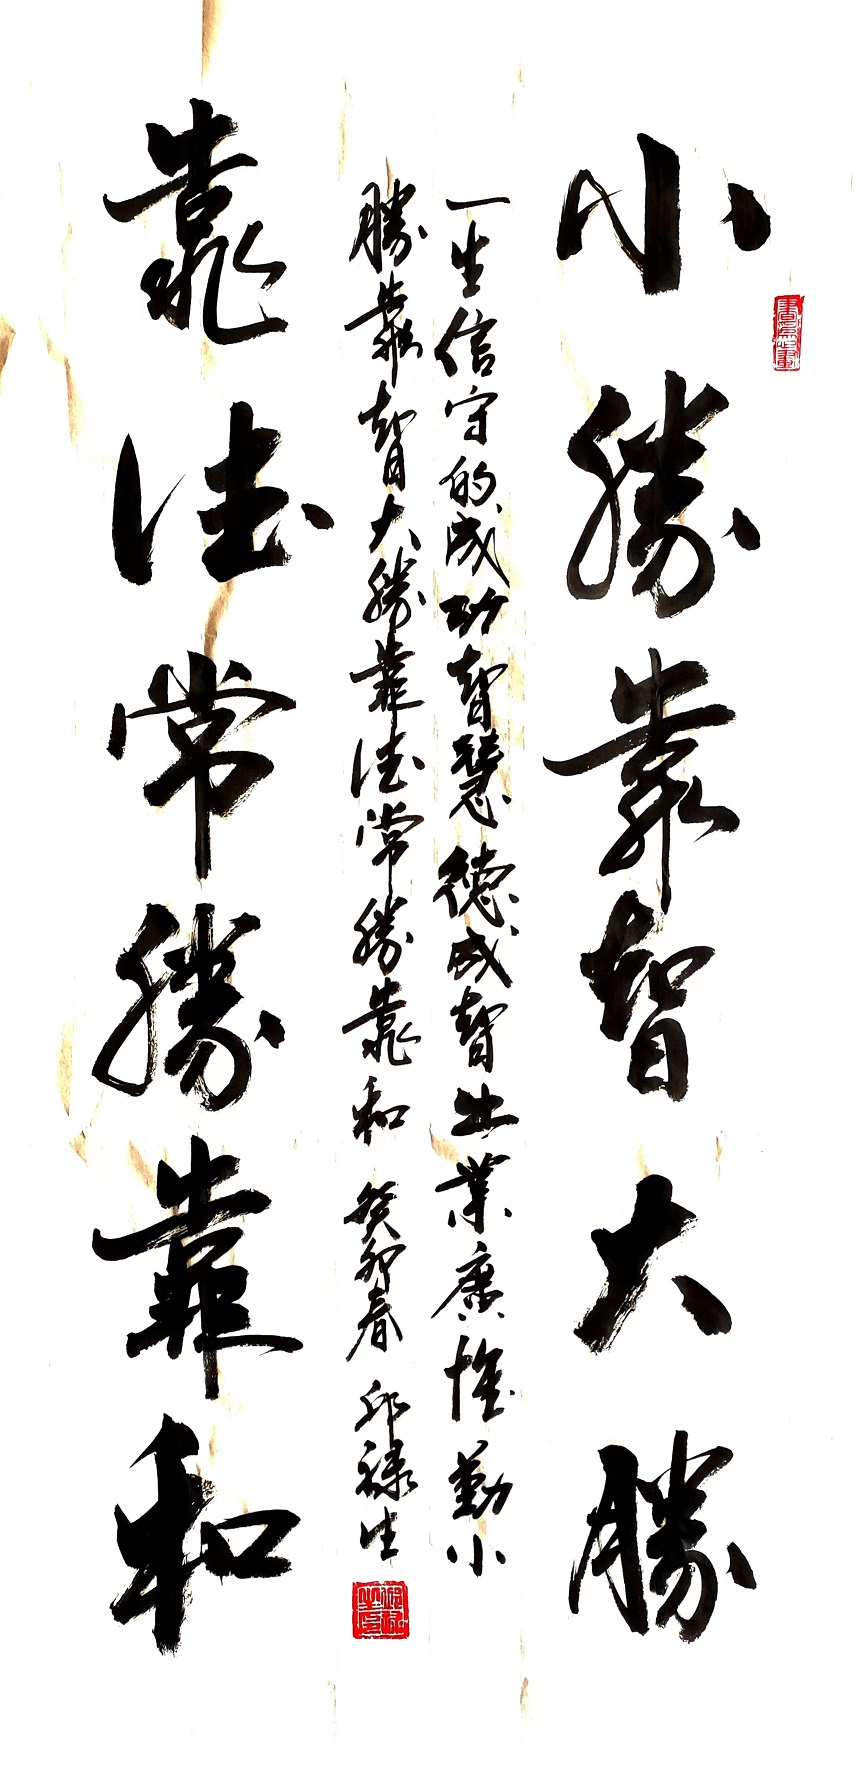 小勝靠智大勝
靠德常勝靠和
一生信守的成功智慧德成智出業廣惟勤小
勝靠智大勝靠德常勝靠和 癸卯春 邱禄生